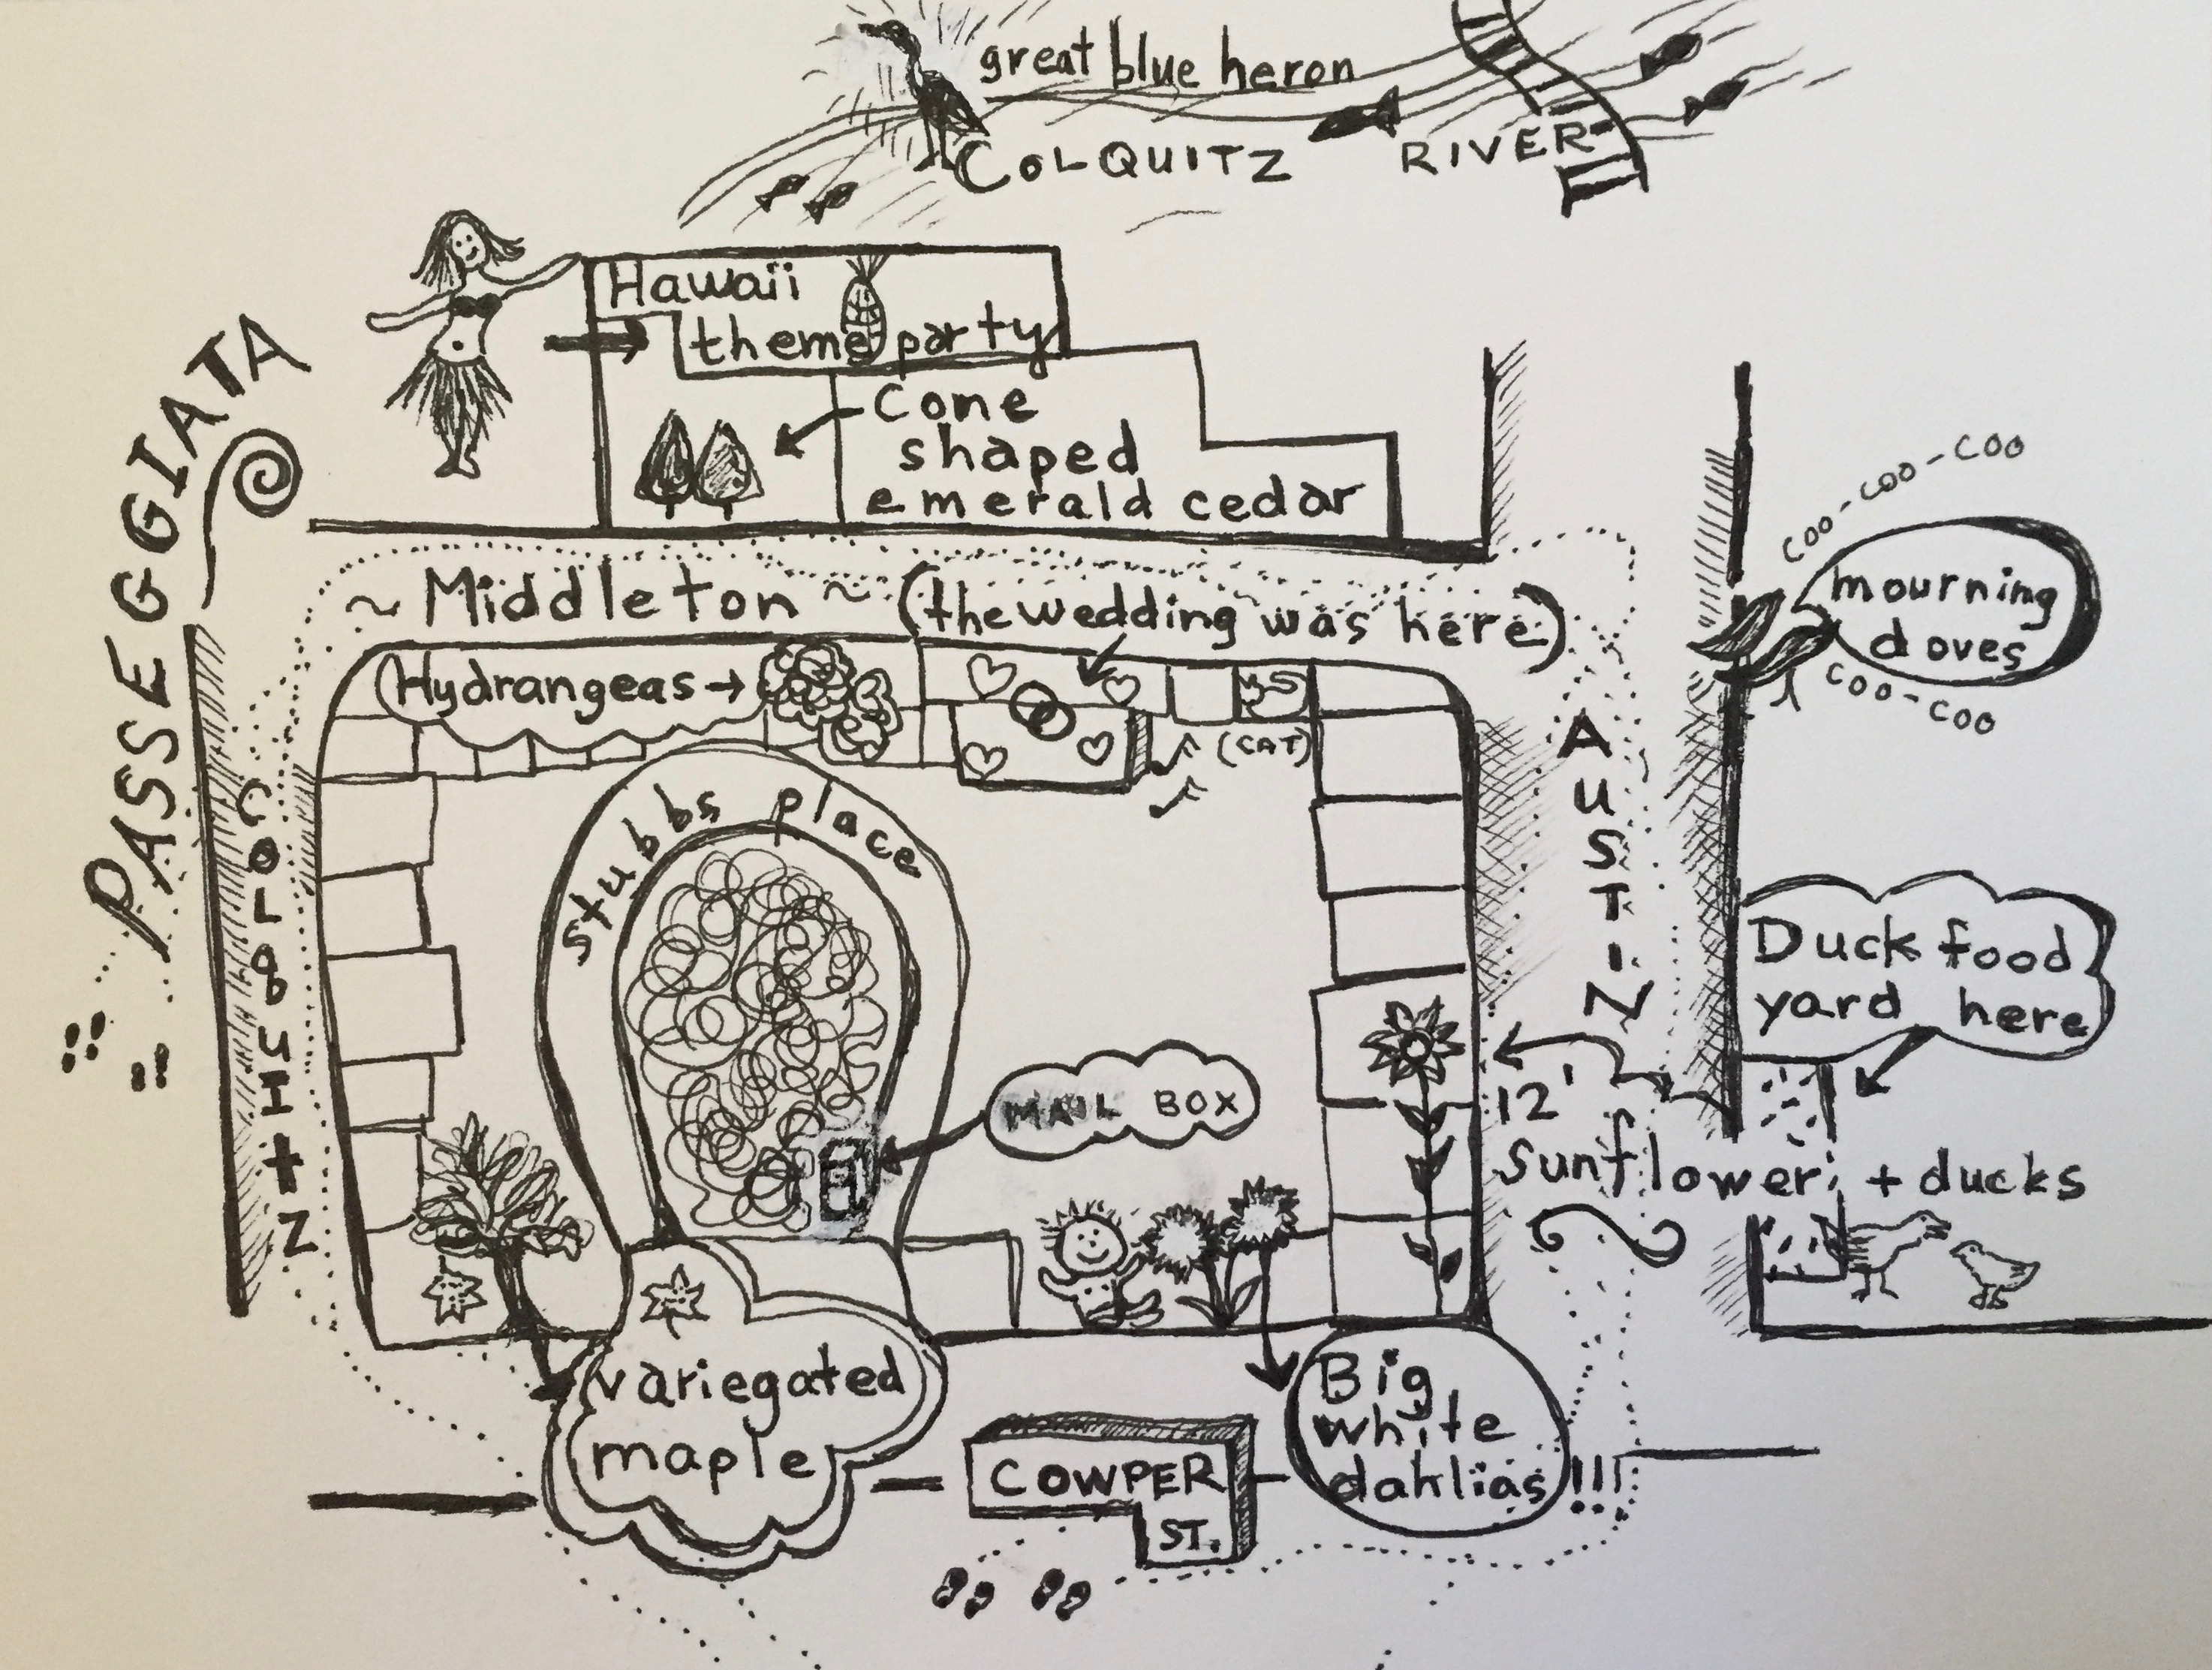 great blue heron
COLQUITZ RIVER
Hawaii
theme party
Cone
shaped
emerald cedar
PASSEGGIATA
coo-coo-coo
mourning
doves
coo-coo
~ Middleton ~ (the wedding was here)
Hydrangeas →
(CAT)
COLQUITZ
AUSTIN
stubbs place
Duck food
yard here
MAIL BOX
12'
Sunflower + ducks
variegated
maple
COWPER
ST.
Big
white
dahlias!!!